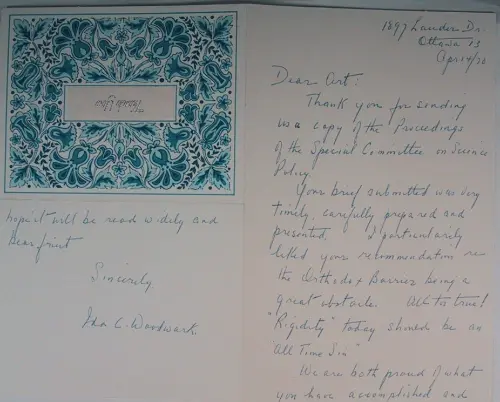 Thank You
1897 Lauder Dr.
Ottawa 13
Apr. 14/70
Dear Art:
Thank you for sending
us a copy of the Proceedings
of the Special Committee on Science
Policy.
Your brief submitted was very
timely, carefully prepared and
presented. I particularly
liked your recommendation re
the Orthodox Barrier being a
great obstacle. All too true!
"Rigidity" today should be an
"All Time Sin"
We are both proud of what
you have accomplished and
hope it will be read widely and
bear fruit
Sincerely
C. Woodwark